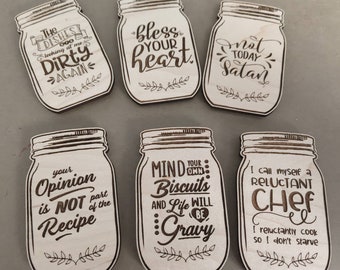 The
DISHES
are
looking at me
DiRTY
AGAIN
bless
YOUR
heart.
not
TODAY
Satan
your
Opinion
is NOT part
of the
Recipe
MIND YOUR
OWN
Biscuits
AND Life WILL
BE
Gravy
I call myself a
RELUCTANT
CHEF
I reluctantly cook
so I don't starve